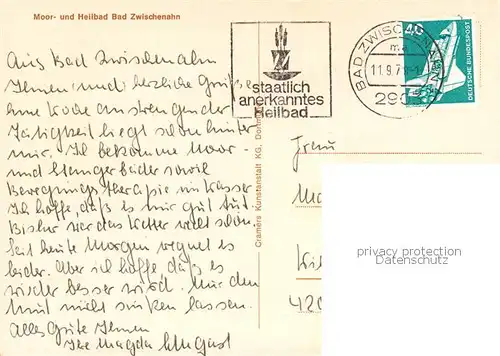 Moor- und Heilbad Bad Zwischenahn
Aus Bad Zwischenahn
Ihnen und herzliche Grüße
Eine Woche anstrengender
Tätigkeit liegt schon hinter
mir. Ich bekomme Moor-
und Stangerbäder sowie
Bewegungstherapie im Wasser
Ich hoffe, daß es mir gut tut.
Bisher war das Wetter recht schön.
Seit heute Morgen regnet es
leider. Aber ich hoffe, daß es
wieder besser wird. Nur den
Mut nicht sinken lassen.
Alles Gute Ihnen
Ihre Magda
Cramers Kunstanstalt KG, Dortmund
staatlich
anerkanntes
Heilbad
BAD ZWISCHENAHN
11.9.7
2903
40
DEUTSCHE BUNDESPOST
Frau
privacy protection
Datenschutz
420